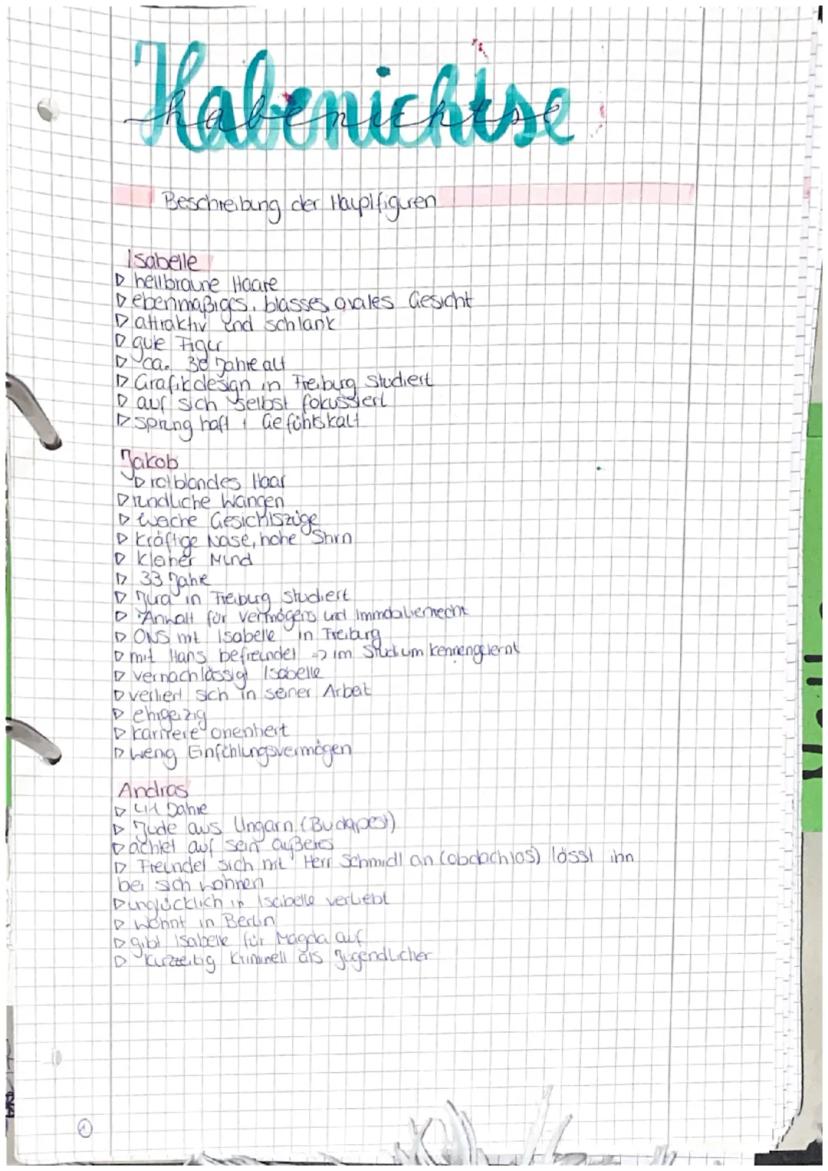 Habenichtse
habenichtse
Beschreibung der Hauptfiguren
Isabelle
▷ hellbraune Haare
▷ ebenmäßiges, blasses, ovales Gesicht
▷ attraktiv und schlank
▷ gute Figur
▷ ca. 30 Jahre alt
▷ Grafikdesign in Freiburg studiert
▷ auf sich selbst fokussiert
▷ sprunghaft + Gefühlskalt
Jakob
▷ rotblondes Haar
▷ rundliche Wangen
▷ weiche Gesichtszüge
▷ kräftige Nase, hohe Stirn
▷ kleiner Mund
▷ 33 Jahre
▷ Jura in Freiburg studiert
▷ Anwalt für Vermögens und Immobilienrecht
▷ ONS mit Isabelle in Freiburg
▷ mit Hans befreundet => im Studium kennengelernt
▷ vernachlässigt Isabelle
▷ verliert sich in seiner Arbeit
▷ ehrgeizig
▷ karriere orientiert
▷ wenig Einfühlungsvermögen
Andras
▷ Jahre
▷ Jude aus Ungarn (Budapest)
▷ achtet auf sein äußeres
▷ Freundet sich mit Herr Schmidt an (obdachlos) lässt ihn
bei sich wohnen
▷ unglücklich in Isabelle verliebt
▷ wohnt in Berlin
▷ gibt Isabelle für Magda auf
▷ kurzzeitig kriminell als Jugendlicher
1